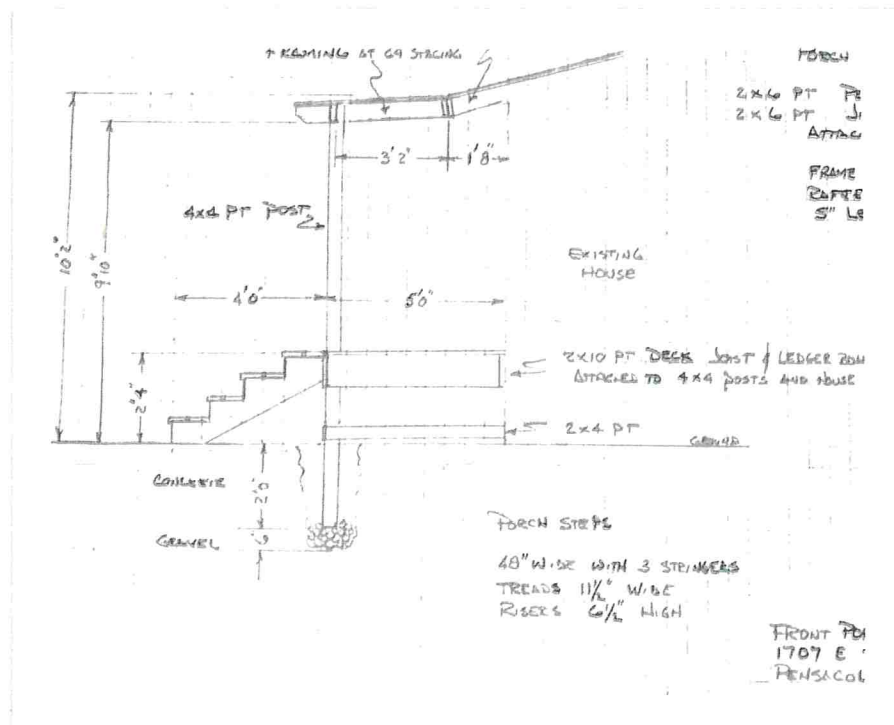 FRAMING AT 69 STACING
PORCH
2x6 PT
2x6 PT
ATTAC
FRAME
RAFTE
5"
3'2"
1'8"
4x4 PT POST
10'2"
9'10"
EXISTING
HOUSE
4'0"
5'0"
2x10 PT DECK JOIST & LEDGER
ATTACHED TO 4x4 POSTS AND HOUSE
2'4"
2x4 PT
GROUND
CONCRETE
2'0"
GRAVEL
6"
PORCH STEPS
48" WIDE WITH 3 STRINGERS
TREADS 11½" WIDE
RISERS 6½" HIGH
FRONT PO
1707 E
PENSACOL